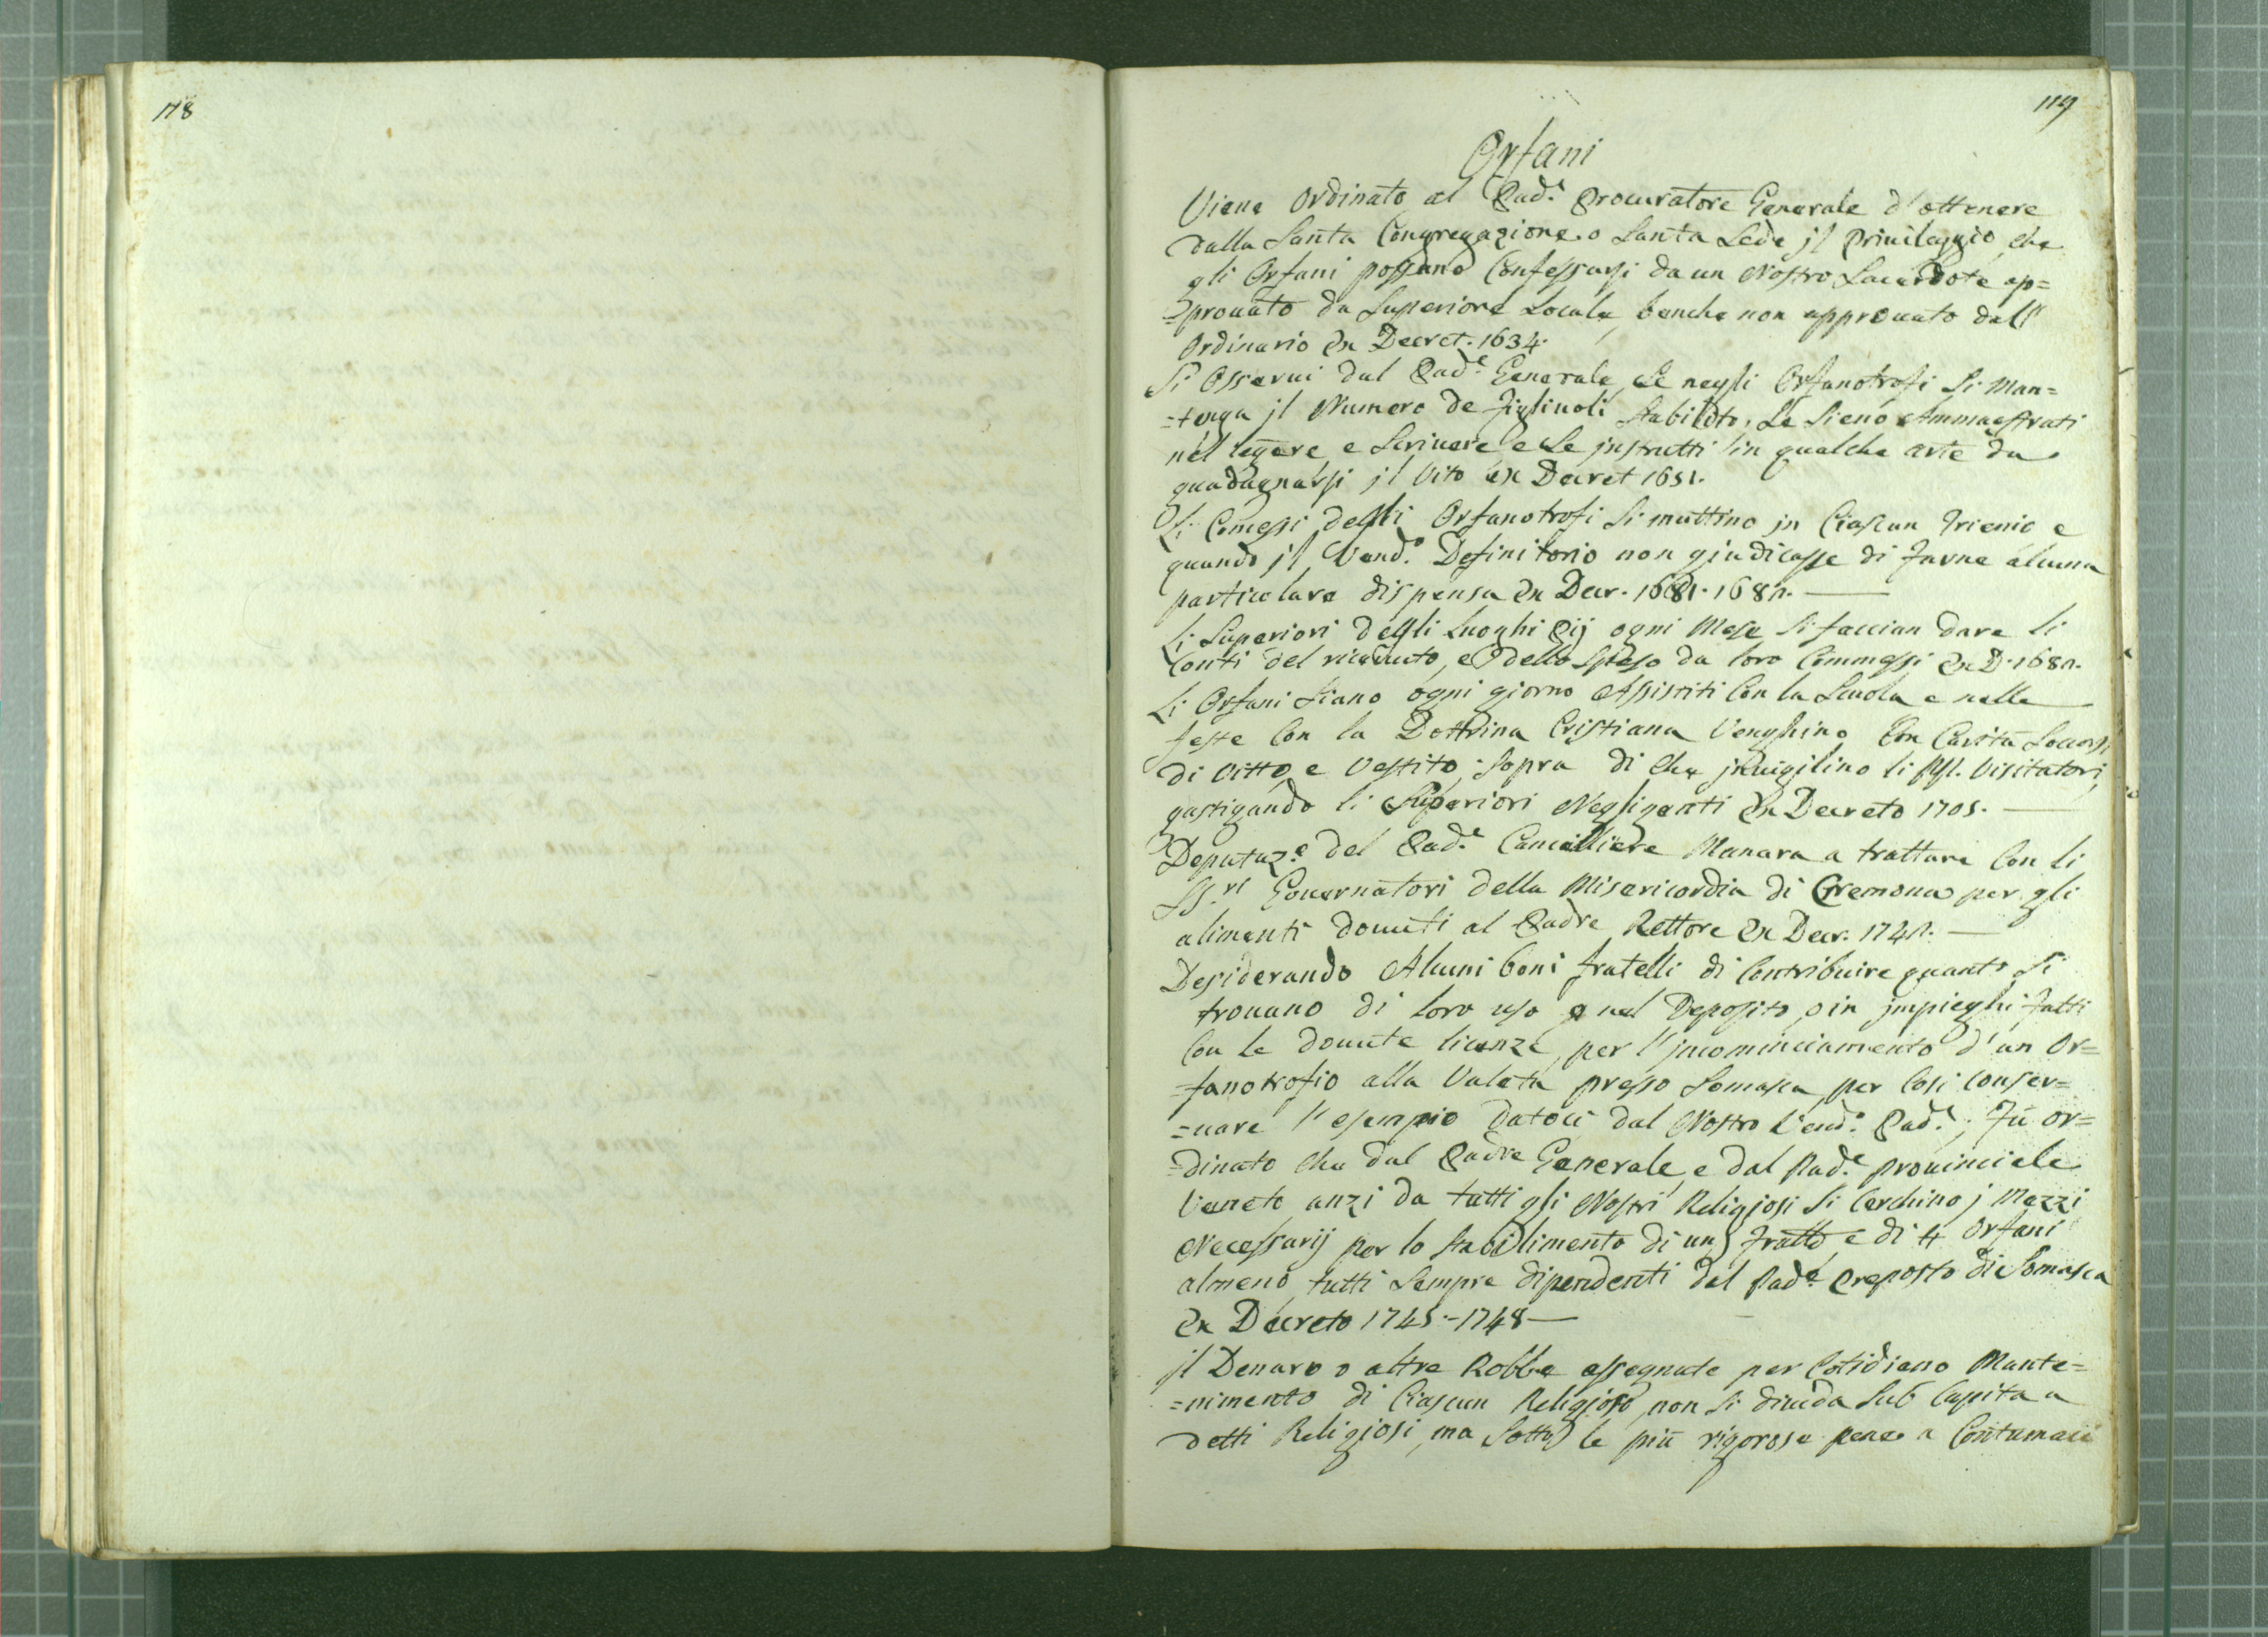 118
119
Orfani
Viene Ordinato al Pad.e Procuratore Generale d'ottenere
dalla Santa Congregazione o Santa Sede jl Priuileggio, che
gli Orfani possano Confessarsi da un Nostro Sacerdote ap=
=prouato da Superiore Locale, benche non approuato dall'
Ordinario Ex Decret. 1634.
Si Osserui dal Pad.e Generale, se negli Orfanotrofi si Man=
=tenga jl Numero de figliuoli stabilito, se sieno Ammaestrati
nel legere e Scriuere e se jnstrutti in qualche arte da
guadagnarsi jl vito ex Decret 1651.
Li Comessi degli Orfanotrofi si muttino jn Ciascun Trienio e
quando jl Vend.o Definitorio non giudicasse di farne alcuna
particolare dispensa Ex Decr. 1681. 1682.
Li Superiori degli Luoghi Pij ogni Mese si faccian dare li
Conti del riceuuto, e dello Speso da loro Commessi Ex D. 1682.
Li Orfani siano ogni giorno Assistiti Con la Scuola e nelle
feste Con la Dottrina Cristiana Venghino Con Carità Socorsi
di Vitto, e Vestito, sopra di che jnuigilino li Visitatori,
gastigando li Superiori Negligenti Ex Decreto 1705.
Deputaz.e del Pad.e Cancelliere Manara a trattare Con li
SS.ri Gouernatori della Misericordia di Cremona per gli
alimenti douuti al Padre Rettore Ex Decr. 1742.
Desiderando Alcuni boni fratelli di Contribuire quanto si
trouano di loro uso o nel Deposito, o in jmpieghi fatti
Con le douute licenze, per l'jncominciamento d'un Or=
=fanotrofio alla Valeta presso Somasca, per Cosi conser=
=uare l'esempio datoci dal Nostro Vend.o Pad.e; fù or=
=dinato che dal Padre Generale, e dal Pad.e prouinciale
Veneto anzi da tutti gli Nostri Religiosi si Cerchino j Mezzi
Necessarij per lo stabilimento di un fratto, e di 4 Orfani
almeno, tutti sempre dipendenti dal Pad.e Preposto di Somasca
Ex Decreto 1745.-1748
jl Denaro o altre Robbe assegnate per Cotidiano Mante=
=nimento di Ciascun Religioso, non si diuida Sub Capita a
detti Religiosi, ma Sotto le più rigorose pene a Contumaci